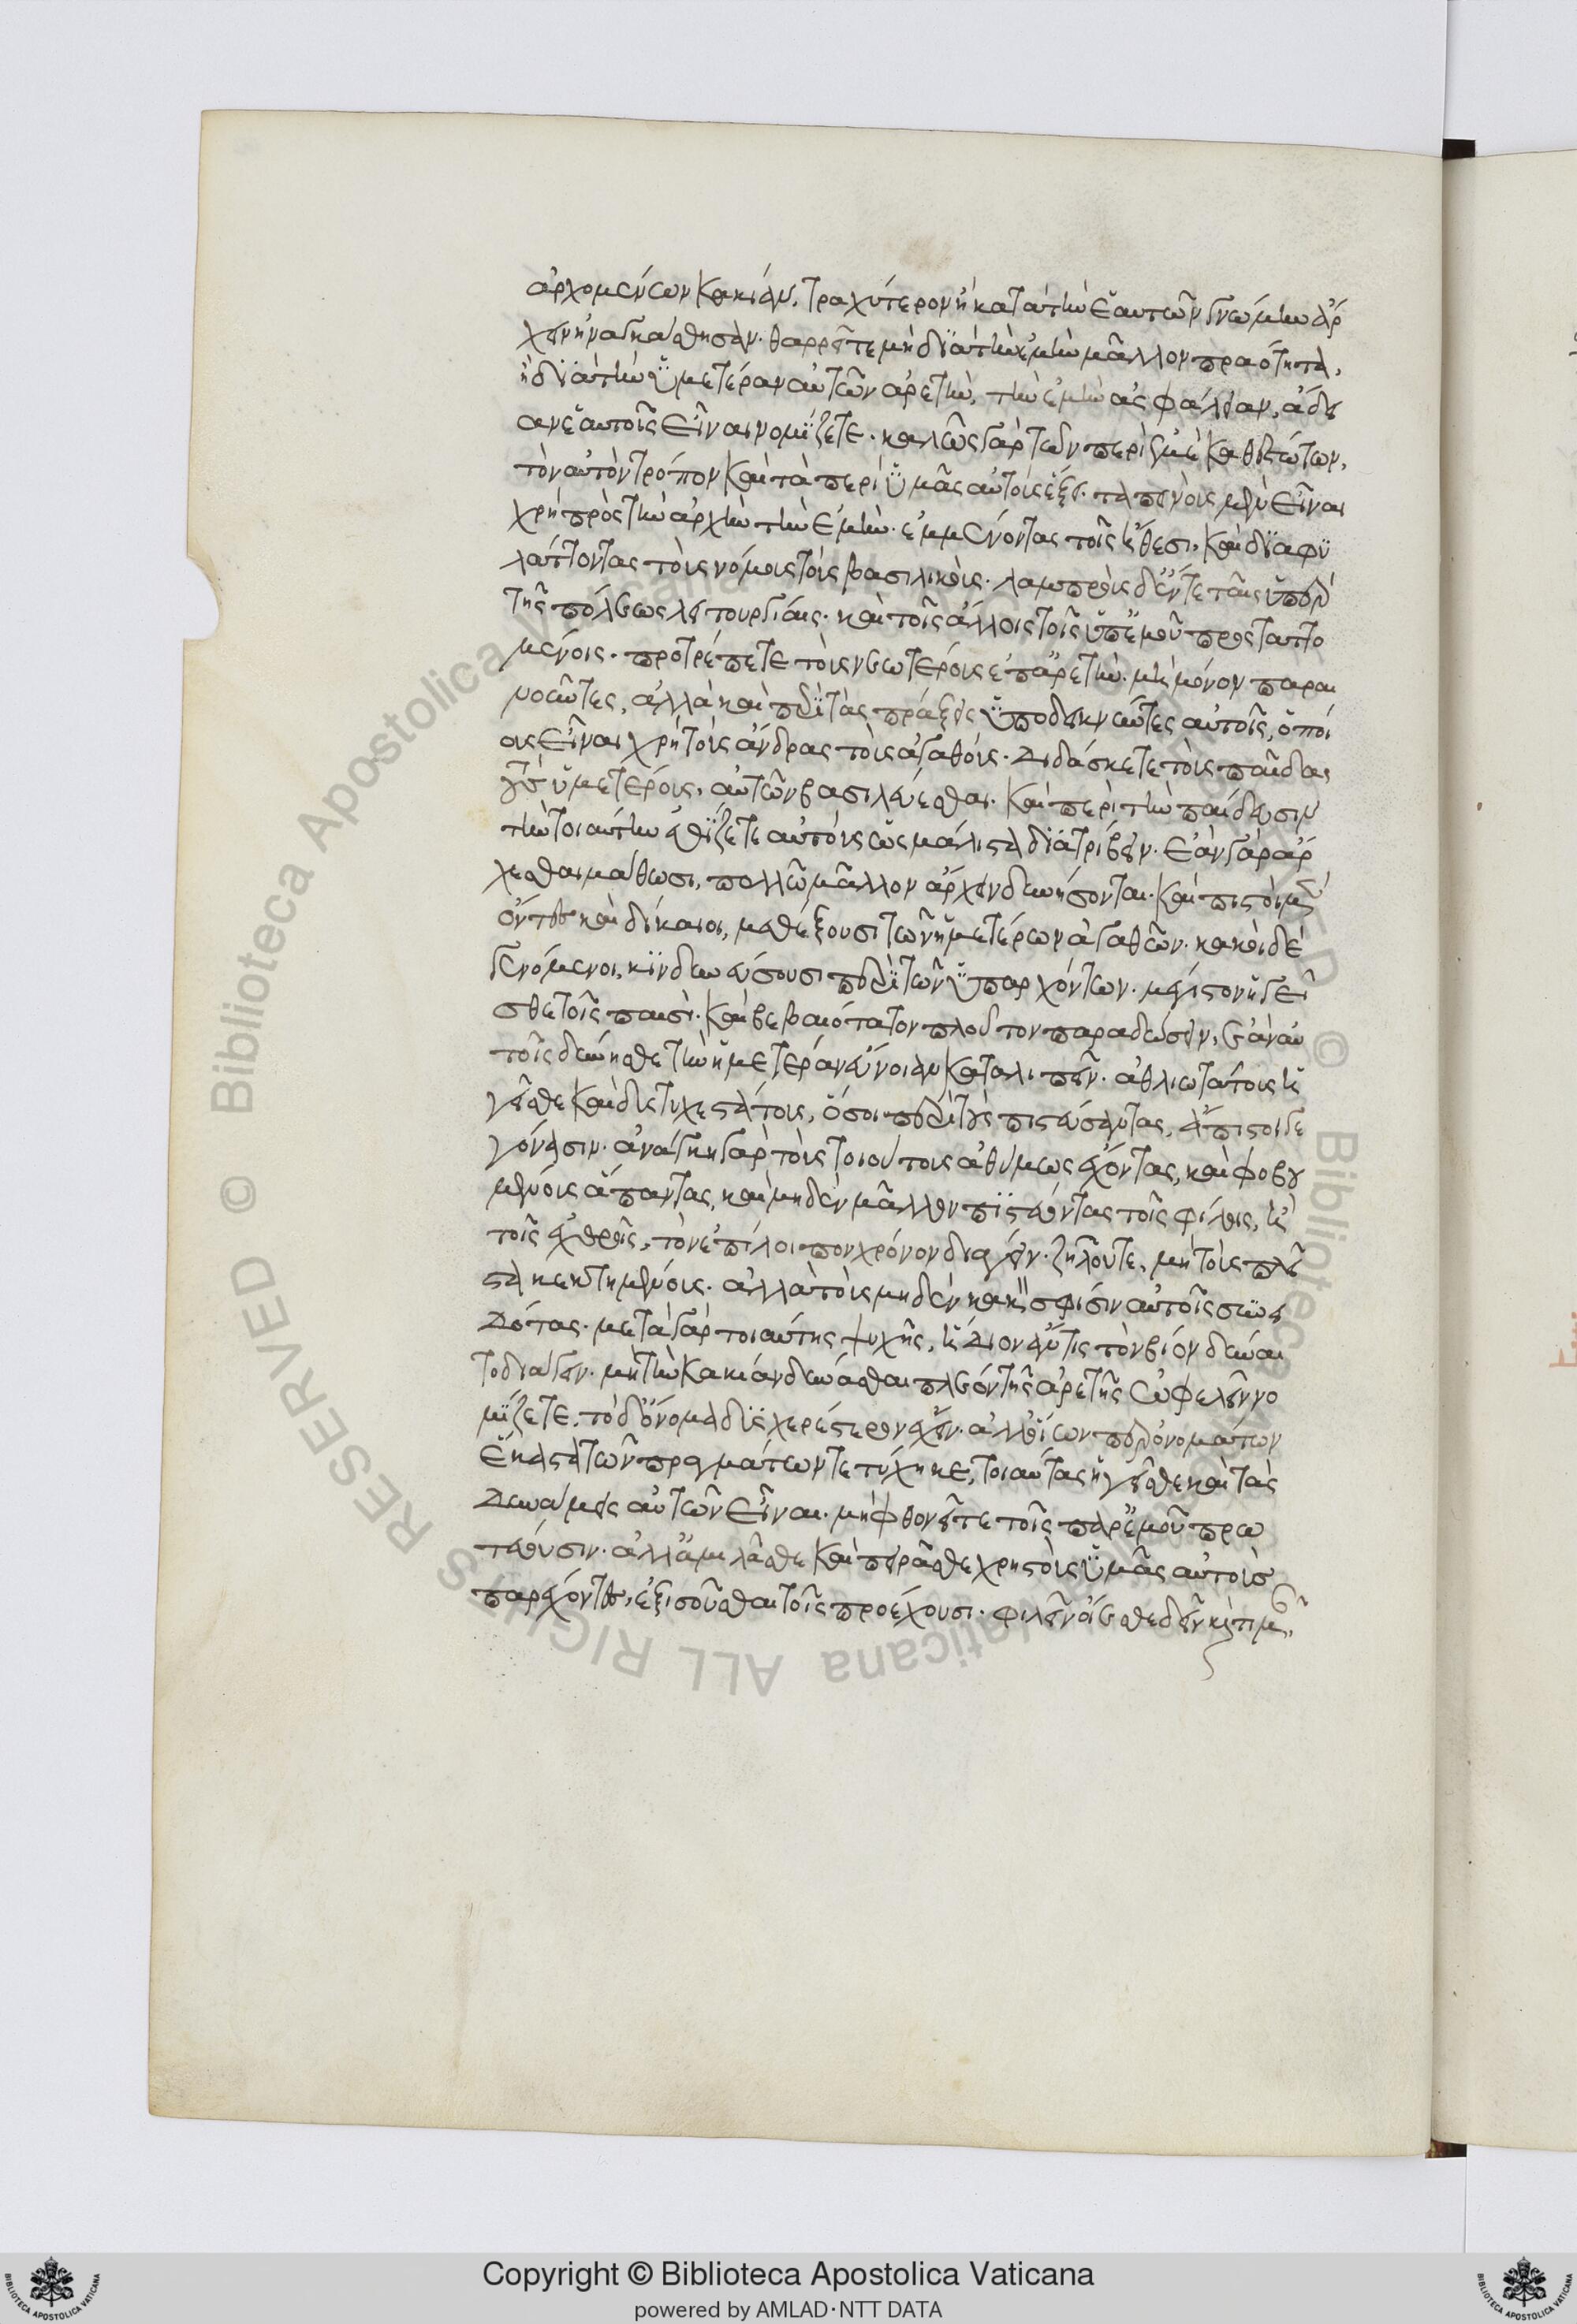 ἀρχομένων κακίαν, τραχύτερον ἢ κατὰ τὴν ἑαυτῶν γνώμην ἄρ
χειν ἠναγκάσθησαν. θαρρεῖτε μὴ διὰ τὴν ἐμὴν μᾶλλον πραότητα,
ἢ διὰ τὴν ὑμετέραν αὐτῶν ἀρετήν. τὴν ἐμὴν ἀσφάλειαν, ἄδει
αν ἑαυτοῖς εἶναι νομίζετε. καλῶς γὰρ τῶν περὶ ἐμὲ καθεστώτων,
τὸν αὐτὸν τρόπον καὶ τὰ περὶ ὑμᾶς αὐτοὺς ἕξει. ταπεινοὺς μὲν εἶναι
χρὴ πρὸς τὴν ἀρχὴν τὴν ἐμήν. ἐμμένοντας τοῖς ἔθεσι, καὶ διαφυ
λάττοντας τοὺς νόμους τοὺς βασιλικούς. λαμπροὺς δ' ἔν τε ταῖς ὑπὲρ
τῆς πόλεως λειτουργίαις. καὶ τοῖς ἄλλοις τοῖς ὑπ' ἐμοῦ προσταττο
μένοις. προτρέπετε τοὺς νεωτέρους ἐπ' ἀρετήν. μὴ μόνον παραι
νοῦντες, ἀλλὰ καὶ περὶ τὰς πράξεις ὑποδεικνύντες αὐτοῖς, ὁποί
ους εἶναι χρὴ τοὺς ἄνδρας τοὺς ἀγαθούς. Διδάσκετε τοὺς παῖδας
τοὺς ὑμετέρους αὐτῶν βασιλεύεσθαι. καὶ περὶ τὴν παίδευσιν
τὴν τοιαύτην ἐθίζετε αὐτοὺς ὡς μάλιστα διατρίβειν. ἐὰν γὰρ ἄρ
χεσθαι μάθωσι, πολλῶν μᾶλλον ἄρχειν δυνήσονται. καὶ πιστοὶ μὲν
ὄντες καὶ δίκαιοι, μεθέξουσι τῶν ἡμετέρων ἀγαθῶν. κακοὶ δὲ
γενόμενοι, κινδυνεύσουσι περὶ τῶν ὑπαρχόντων. μέγιστον ἡγεῖ
σθε τοῖς παισὶ. καὶ βεβαιότατον πλοῦτον παραδώσειν, ἐὰν αὐ
τοῖς δύνησθε τὴν ἡμετέραν εὔνοιαν καταλιπεῖν. ἀθλιωτάτους ἡ
γεῖσθε καὶ δυστυχεστάτους, ὅσοι περὶ τοὺς πιστεύσαντας, ἄπιστοι γε
γόνασιν. ἀνάγκη γὰρ τοὺς τοιούτους ἀθύμως ἔχοντας, καὶ φοβου
μένους ἅπαντας, καὶ μηδὲν μᾶλλον πιστεύοντας τοῖς φίλοις, ἢ
τοῖς ἐχθροῖς, τὸν ἐπίλοιπον χρόνον διάγειν. ζηλοῦτε, μὴ τοὺς πλεῖ
στα κεκτημένους. ἀλλὰ τοὺς μηδὲν κακὸν σφίσιν αὐτοῖς συνει
δότας. μετὰ γὰρ τοιαύτης ψυχῆς, ἥδιον ἄν τις τὸν βίον δύναι
το διάγειν. μὴ τὴν κακίαν δύνασθαι πλέον τῆς ἀρετῆς ὠφελεῖν νο
μίζετε. τὸ δ' ὄνομα δυσχερέστερον ἔχειν. ἀλλ' οἵων περ ὀνομάτων
ἕκαστα τῶν πραγμάτων τετύχηκε, τοιαύτας ἡγεῖσθε καὶ τὰς
Δυνάμεις αὐτῶν εἶναι. μὴ φθονεῖτε τοῖς παρ' ἐμοῦ πρω
τεύουσιν. ἀλλ' ἁμιλλᾶσθε καὶ πειρᾶσθε χρηστοὺς ὑμᾶς αὐτοὺς
παρέχοντες, ἐξισοῦσθαι τοῖς προέχουσι. φιλεῖν οἴεσθε δεῖν καὶ τιμᾶν,
Copyright © Biblioteca Apostolica Vaticana
powered by AMLAD·NTT DATA